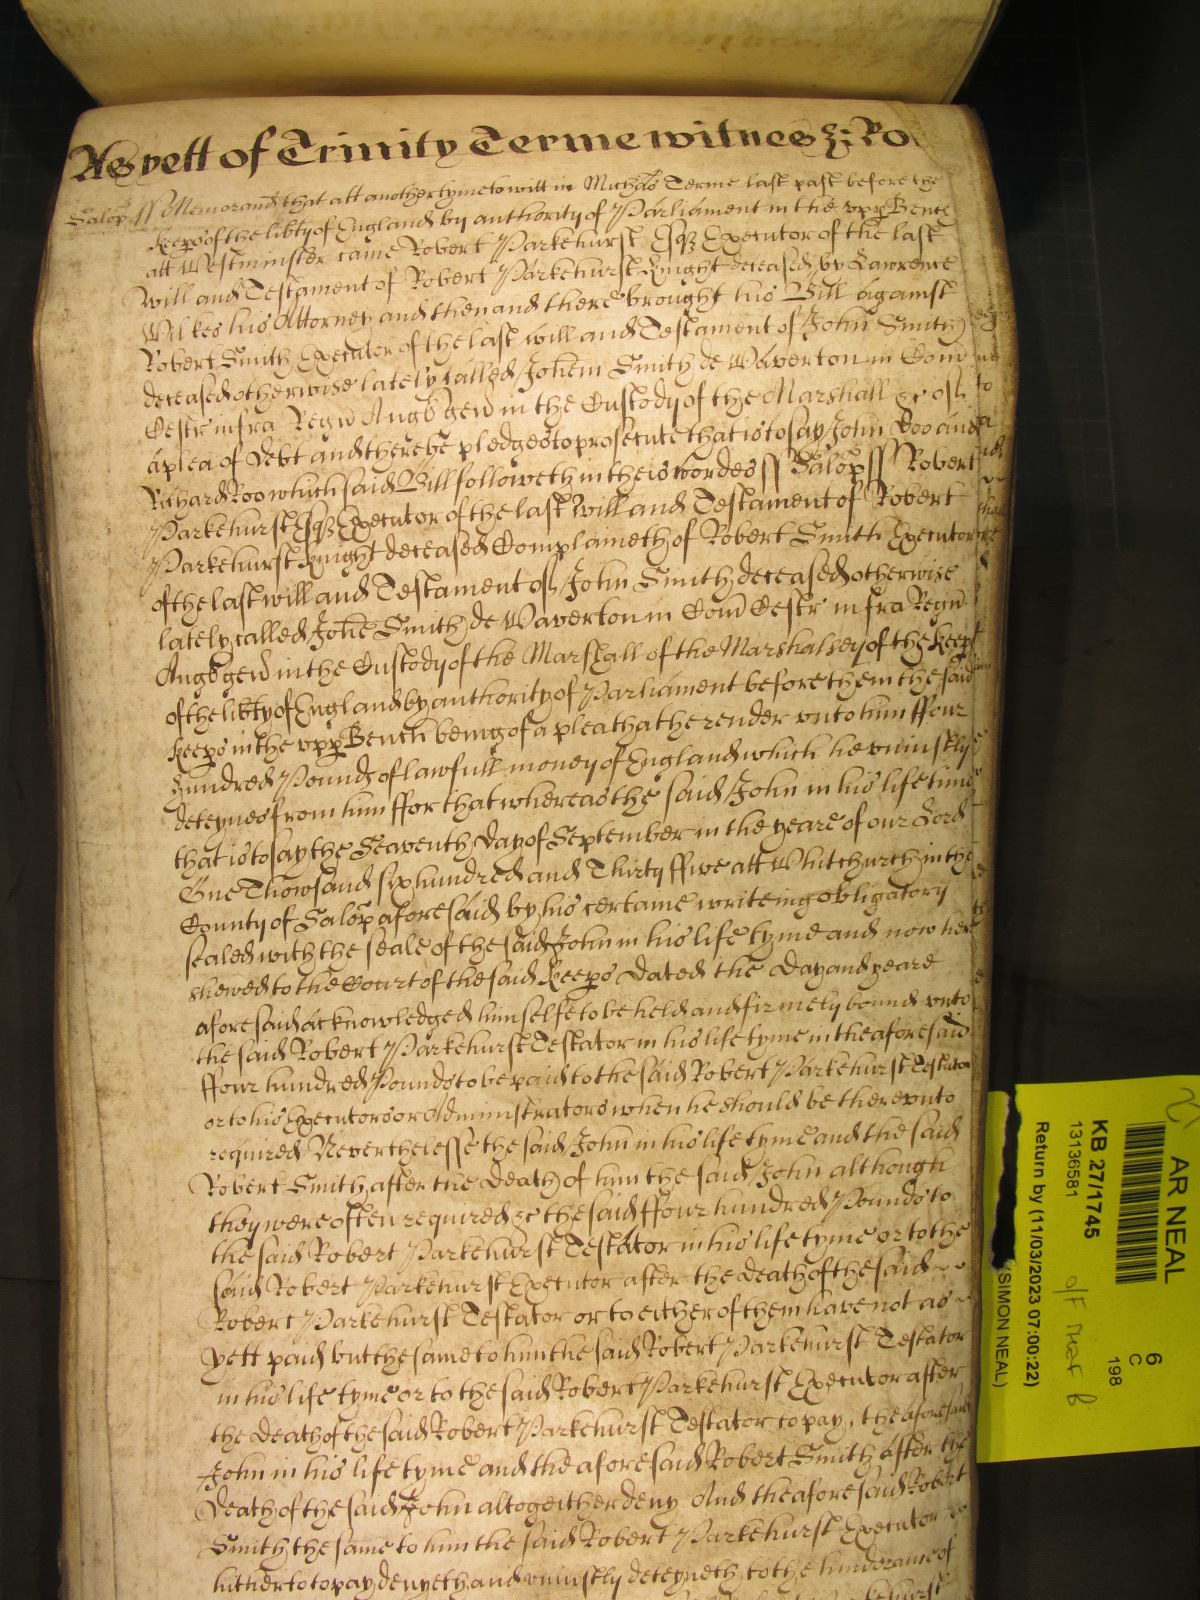 As yett of Trinity Terme witnes z: Ro
Salop ss Memorand that att another tyme to witt in Michas Terme last past before the
Keeps of the libty of England by authority of Parliament in the vpp Bench
att Westminster came Robert Parkehurst Esqz Executor of the last
will and Testament of Robert Parkehurst Knight deceased by Lawrence
Wilkes his Attorney and then and there brought his Bill against
Robert Smith Executor of the last will and Testament of John Smith
deceased otherwise lately called Johem Smith de Waverton in Com
Cestr infra Regn Angl gen in the Custody of the Marshall &c of
a plea of Debt and there he pledges to prosecute that is to say John Doo and
Richard Roo which said Bill followeth in theis wordes ss Salop ss Robert
Parkehurst Esqz Executor of the last will and Testament of Robert
Parkehurst Knight deceased Complaineth of Robert Smith Executor
of the last will and Testament of John Smith deceased otherwise
lately called Johem Smith de Waverton in Com Cestr infra Regn
Angl gen in the Custody of the Marshall of the Marshalsey of the Keeps
of the libty of England by authority of Parliament before them the said
Keeps in the vpp Bench being of a plea that he render vnto him ffour
hundred Pounds of lawfull money of England which he vniustly
deteynes from him ffor that whereas the said John in his life time
that is to say the Seaventh day of September in the yeare of our Lord
One Thowsand six hundred and Thirty ffive att Whitchurch in the
County of Salop aforesaid by his certaine writeing obligatory
sealed with the seale of the said John in his life tyme and now here
shewed to the Court of the said Keeps Dated the day and yeare
aforesaid acknowledged himselfe to be held and firmely bound vnto
the said Robert Parkehurst Testator in his life tyme in the aforesaid
ffour hundred Pounds to be paid to the said Robert Parkehurst Testator
or to his Executors or Administrators when he should be therevnto
required Neverthelesse the said John in his life tyme and the said
Robert Smith after the Death of him the said John although
they were often required &c the said ffour hundred Pounds to
the said Robert Parkehurst Testator in his life tyme or to the
said Robert Parkehurst Executor after the death of the said
Robert Parkehurst Testator or to either of them have not as
yett paid but the same to him the said Robert Parkehurst Testator
in his life tyme or to the said Robert Parkehurst Executor after
the death of the said Robert Parkehurst Testator to pay, the aforesaid
John in his life tyme and the aforesaid Robert Smith after the
Death of the said John altogeither deny. And the aforesaid Robert
Smith the same to him the said Robert Parkehurst Executor
hitherto to pay denyeth and vniustly deteyneth to the hinderance of
AR NEAL
KB 27/1745
13136581
Return by (11/03/2023 07:00:22)
(SIMON NEAL)
6
C
198